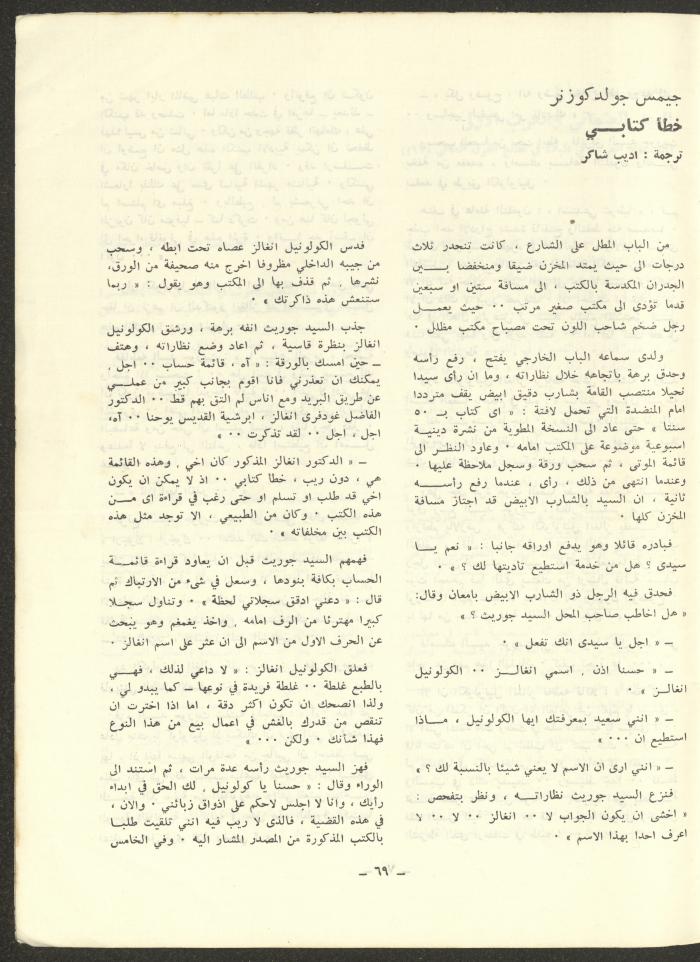 جيمس جولدكوزنر
خطأ كتابـــي
ترجمة : اديب شاكر
من الباب المطل على الشارع ، كانت تنحدر ثلاث
درجات الى حيث يمتد المخزن ضيقا ومنخفضا بـــين
الجدران المكدسة بالكتب ، الى مسافة ستين او سبعين
قدما تؤدى الى مكتب صغير مرتب ٠٠ حيث يعمـــل
رجل ضخم شاحب اللون تحت مصباح مكتب مظلل ٠
ولدى سماعه الباب الخارجي يفتح ، رفع رأسه
وحدق برهة باتجاهه خلال نظاراته ، وما ان رأى سيدا
نحيلا منتصب القامة بشارب دقيق ابيض يقف مترددا
امام المنضدة التي تحمل لافتة : « اى كتاب بـ ٥٠
سنتا » حتى عاد الى النسخة المطوية من نشرة دينيـة
اسبوعية موضوعة على المكتب امامه ٠ وعاود النظـر الى
قائمة الموتى ، ثم سحب ورقة وسجل ملاحظة عليها ٠
وعندما انتهى من ذلك ، رأى ، عندما رفع رأســـه
ثانية ، ان السيد بالشارب الابيض قد اجتاز مسافة
المخزن كلها ٠
فبادره قائلا وهو يدفع اوراقه جانبا : « نعم يـــا
سيدى ؟ هل من خدمة استطيع تأديتها لك ؟ » ٠
فحدق فيه الرجل ذو الشارب الابيض بامعان وقال:
« هل اخاطب صاحب المحل السيد جوريث ؟ »
ــ « اجل يا سيدى انك تفعل » ٠
ــ « حسنا اذن ، اسمي انغالـــز ٠٠ الكولونيل
انغالـز » ٠
ــ « انني سعيد بمعرفتك ايها الكولونيل ، مـــاذا
استطيع ان ٠٠٠ »
ــ « انني ارى ان الاسم لا يعني شيئا بالنسبة لك ؟ »
فنزع السيد جوريث نظاراتـــه ، ونظر بتفحص :
« اخشى ان يكون الجواب لا ٠٠ انغالز ٠٠ لا ٠٠ لا
اعرف احدا بهذا الاسم » ٠
فدس الكولونيل انغالز عصاه تحت ابطه ، وسحب
من جيبه الداخلي مظروفا اخرج منه صحيفة من الورق،
نشرها ، ثم قذف بها الى المكتب وهو يقول : « ربما
ستنعش هذه ذاكرتك » ٠
جذب السيد جوريث انفه برهة ، ورشق الكولونيل
انغالز بنظرة قاسية ، ثم اعاد وضع نظاراته ، وهتف
ــ حين امسك بالورقة : « آه ، قائمة حساب ٠٠ اجل ،
يمكنك ان تعذرني فانا اقوم بجانب كبير من عملـــي
عن طريق البريد ومع اناس لم التق بهم قط ٠٠ الدكتور
الفاضل غودفرى انغالز ، ابرشية القديس يوحنا ٠٠ آه،
اجل ، اجل ٠٠ لقد تذكرت ٠٠ »
ــ « الدكتور انغالز المذكور كان اخي ، وهذه القائمة
هي ، دون ريب ، خطأ كتابي ٠٠ اذ لا يمكن ان يكون
اخي قد طلب او تسلم او حتى رغب في قراءة اى مـــن
هذه الكتب ٠ وكان من الطبيعي ، الا توجد مثل هذه
الكتب بين مخلفاته » ٠
فهمهم السيد جوريث قبل ان يعاود قراءة قائمـــة
الحساب بكافة بنودها ، وسعل في شىء من الارتباك ثم
قال : « دعني ادقق سجلاتي لحظة » ٠ وتناول سجـلا
كبيرا مهترئا من الرف امامه ، واخذ يغمغم وهو يبحث
عن الحرف الاول من الاسم الى ان عثر على اسم انغالز ٠
فعلق الكولونيل انغالز : « لا داعي لذلك ، فهـــي
بالطبع غلطة ٠٠ غلطة فريدة في نوعها ــ كما يبدو لي ،
ولذا انصحك ان تكون اكثر دقة ، اما اذا اخترت ان
تنقص من قدرك بالغش في اعمال بيع من هذا النوع
فهذا شأنك ٠ ولكن ٠٠٠ »
فهز السيد جوريث رأسه عدة مرات ، ثم استند الى
الوراء وقال : « حسنا يا كولونيل ، لك الحق في ابداء
رأيك ، وانا لا اجلس لاحكم على اذواق زبائني ٠ والان ،
في هذه القضية ، فالذى لا ريب فيه انني تلقيت طلبـا
بالكتب المذكورة من المصدر المشار اليه ٠ وفي الخامس
ــ ٦٩ ــ